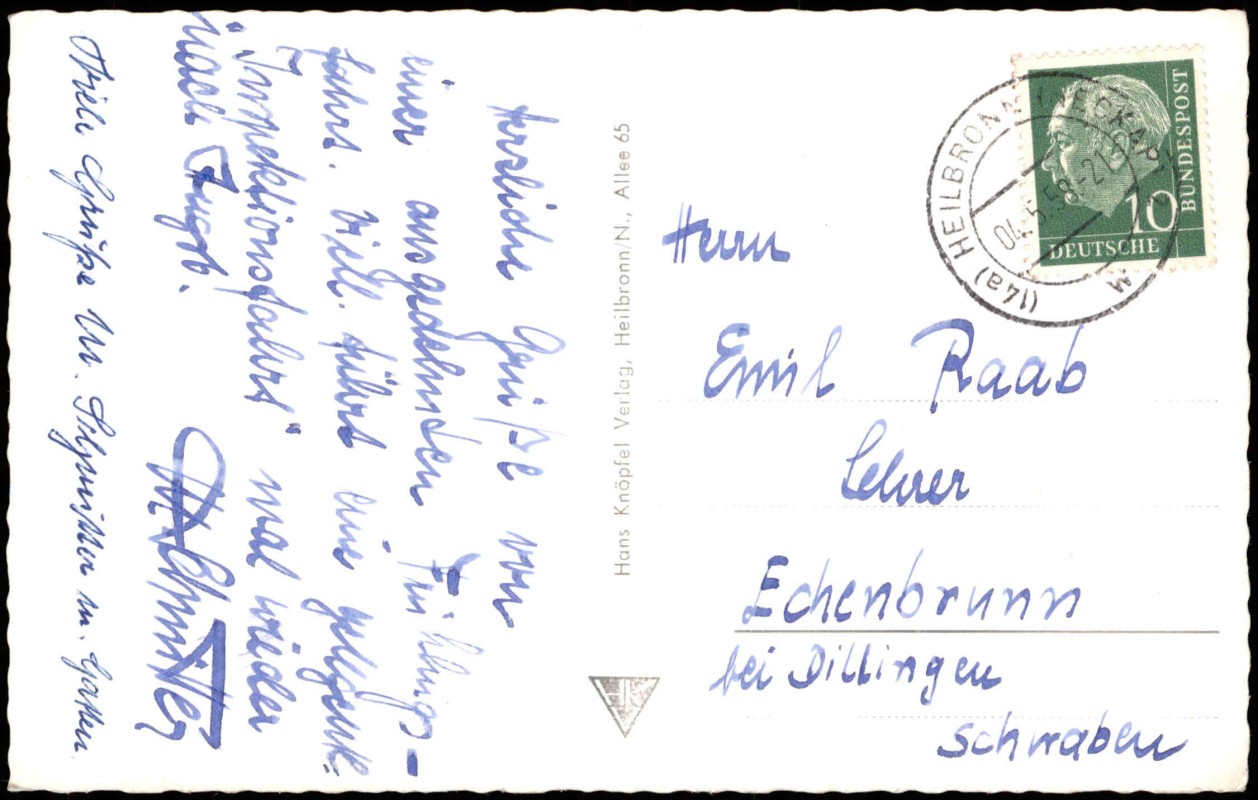 Herzliche Grüße von
einer ausgedehnten Frühlings-
fahrt. Viell. führt eine gelegentl.
"Inspektionsfahrt" mal wieder
nach
Viele Grüße
Hans Knöpfel Verlag, Heilbronn/N., Allee 65
HK
(14a) HEILBRONN (NECKAR)
5.58-21
10
DEUTSCHE
BUNDESPOST
Herrn
Emil Raab
Lehrer
Echenbrunn
bei Dillingen
Schwaben